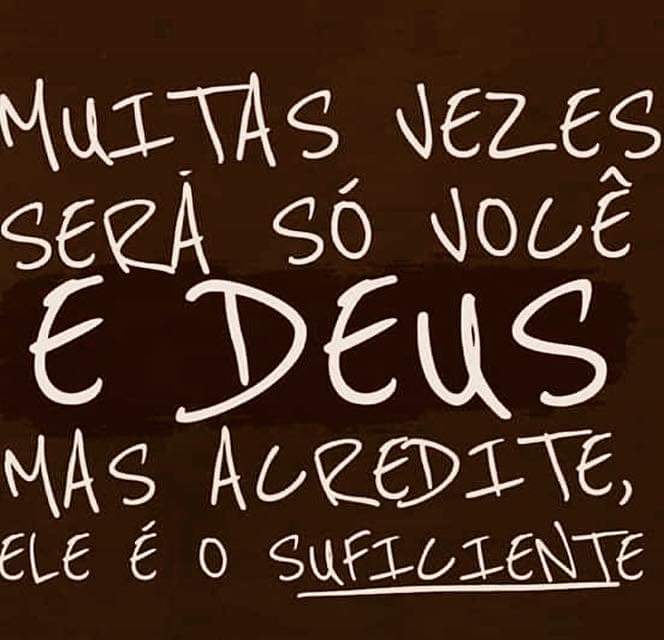 MUITAS VEZES
SERÁ SÓ VOCÊ
E DEUS
MAS ACREDITE,
ELE É O SUFICIENTE